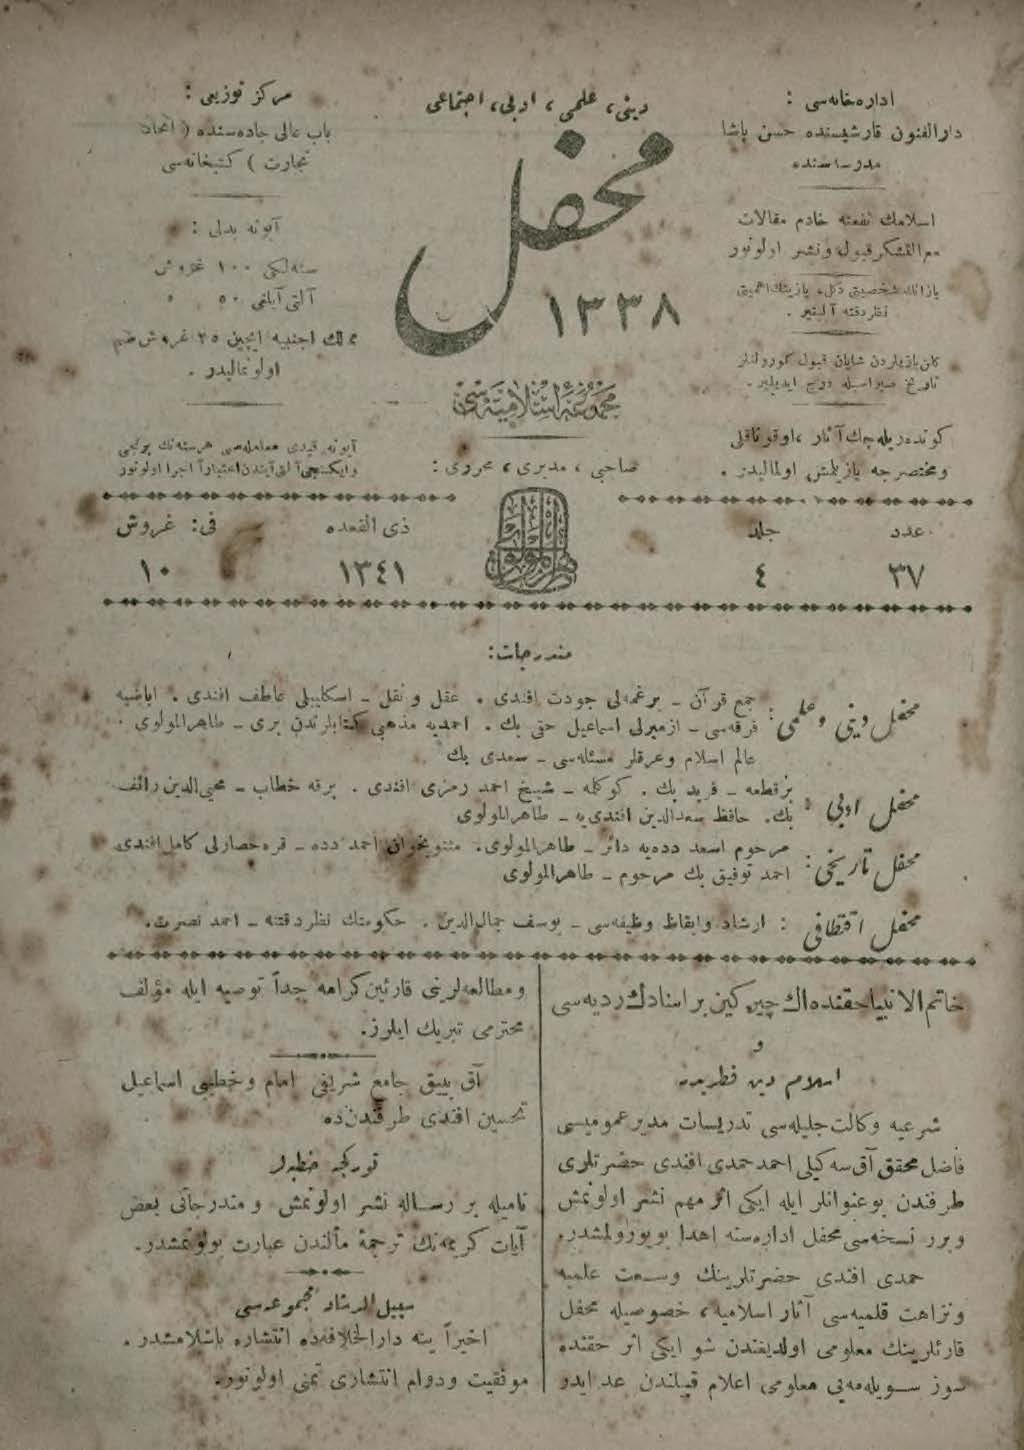 دینی، علمی، ادبی، اجتماعی
محفل
۱۳۳۸
مجموعهٔ اسلامیه‌سی
صاحبی، مدیری، محرری :
اداره‌خانه‌سی :
دارالفنون قارشیسنده حسن پاشا
مدرسه‌سنده
اسلامك نفعنه خادم مقالات
مع‌التشكر قبول و نشر اولونور
یازانك شخصیتی دكل، یازینك اهمیتی
نظر دقته آلینیر .
كلن یازیلردن شایان قبول كورولنلر
تاریخ صیراسیله درج ایدیلیر .
كوندریله‌جك آثار، اوقوناقلی
و مختصرجه یازیلمش اولمالیدر .
مركز توزیعی :
باب عالی جاده‌سنده ( اتحاد
تجارت ) كتبخانه‌سی
آبونه بدلی :
سنه‌لكی ۱۰۰ غروش
آلتی آیلغی ۵۰ »
ممالك اجنبیه ایچین ۲۵ غروش ضم
اولونمالیدر .
آبونه قیدی معامله‌سی هر سنه‌نك برنجی
و ایكنجی آلتی آیندن اعتباراً اجرا اولونور
عدد جلد ذی القعده فی: غروش
۳۷ ٤ ۱۳٤۱ ۱۰
مندرجات:
محفل دینی و علمی : جمع قرآن ـ برغمه‌لی جودت افندی . عقل و نقل ـ اسكلیپلی عاطف افندی . اباضیه
فرقه‌سی ـ ازمیرلی اسماعیل حقی بك . احمدیه مذهبی كتابلرندن بری ـ طاهرالمولوی .
عالم اسلام و عرقلر مسئله‌سی ـ سعدی بك
محفل ادبی : بر قطعه ـ فرید بك . كوكلمه ـ شیخ احمد رمزی افندی . برقه خطاب ـ محیی‌الدین رائف
بك . حافظ سعدالدین افندی‌یه ـ طاهرالمولوی
محفل تاریخی : مرحوم اسعد دده‌یه دائر ـ طاهرالمولوی . مثنویخوان احمد دده ـ قره‌حصارلی كامل افندی
احمد توفیق بك مرحوم ـ طاهرالمولوی
محفل اقتطافی : ارشاد و ایقاظ وظیفه‌سی ـ یوسف جمال‌الدین . حكومتك نظر دقتنه ـ احمد نصرت .
خاتم الانبیا حقنده اك چیركین بر اسنادك ردیه‌سی
و
اسلام دین فطریدر
شرعیه وكالت جلیله‌سی تدریسات مدیر عمومیسی
فاضل محقق آق‌سه‌كیلی احمد حمدی افندی حضرتلری
طرفندن بو عنوانلر ایله ایكی اثر مهم نشر اولونمش
و برر نسخه‌سی محفل اداره‌سنه اهدا بویورولمشدر.
حمدی افندی حضرتلرینك وسعت علمیه
و نزاهت قلمیه‌سی آثار اسلامیه، خصوصیله محفل
قارئلرینك معلومی اولدیغندن شو ایكی اثر حقنده
سوز سویله‌مه‌یی معلومی اعلام قبیلندن عد ایدر
و مطالعه‌لرینی قارئین كرامه جداً توصیه ایله مؤلف
محترمی تبریك ایلرز.
آق بییق جامع شریفی امام و خطیبی اسماعیل
تحسین افندی طرفندن ده
توركجه خطبه‌لر
نامیله بر رساله نشر اولونمش و مندرجاتی بعض
آیات كریمه‌نك ترجمهٔ مآلندن عبارت بولونمشدر.
سبیل‌الرشاد مجموعه‌سی
اخیراً ینه دارالخلافه‌ده انتشاره باشلامشدر .
موفقیت و دوام انتشاری تمنی اولونور.